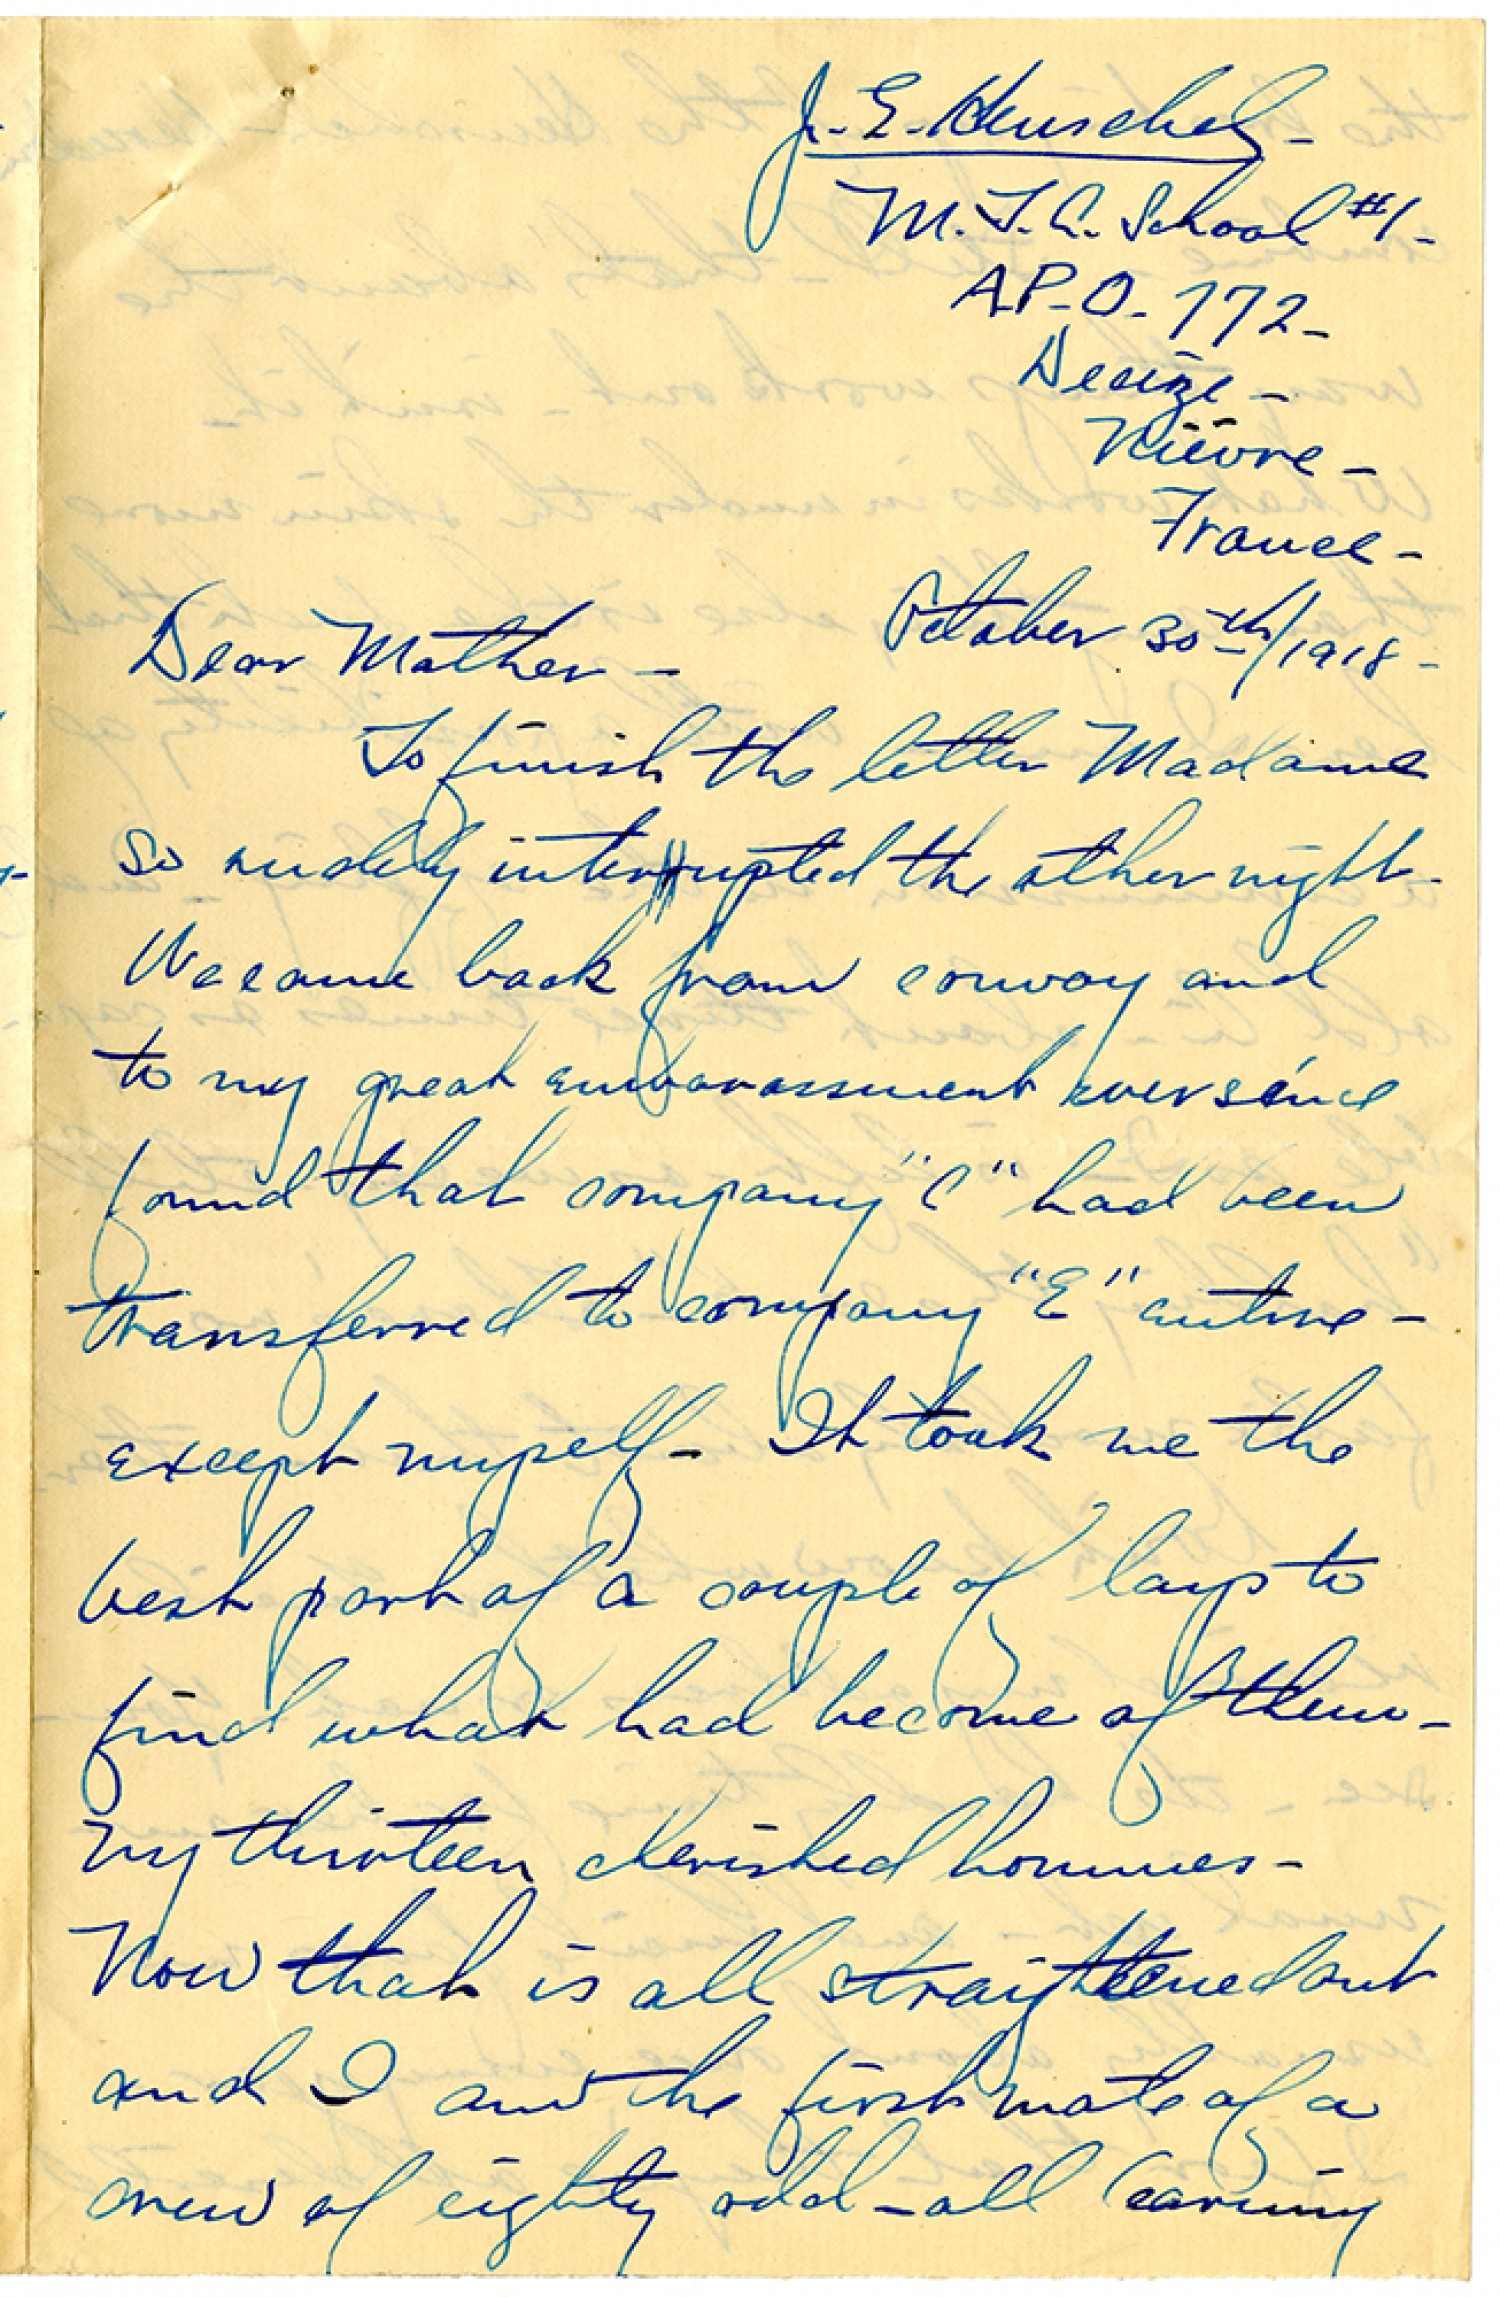 J. E. Henschel -
M. T. C. School #1 -
A.P.O. 772 -
Decize -
Nièvre -
France -
October 30th/1918 -
Dear Mother -
To finish the letter Madame
so rudely interrupted the other night -
We came back from convoy and
to my great embarassment ever since
found that company "C" had been
transferred to company "E" entire -
except myself - It took me the
best part of a couple of days to
find what had become of them -
my thirteen cherished hommes -
Now that is all straightened out
and I am the first mate of a
crew of eighty odd - all learning